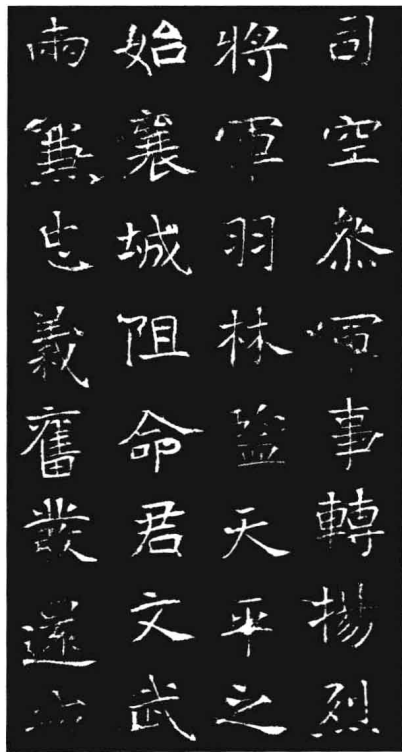 司空叅軍事轉揚烈
將軍羽林監天平之
始襄城阻命君文武
兩兼忠義奮發還